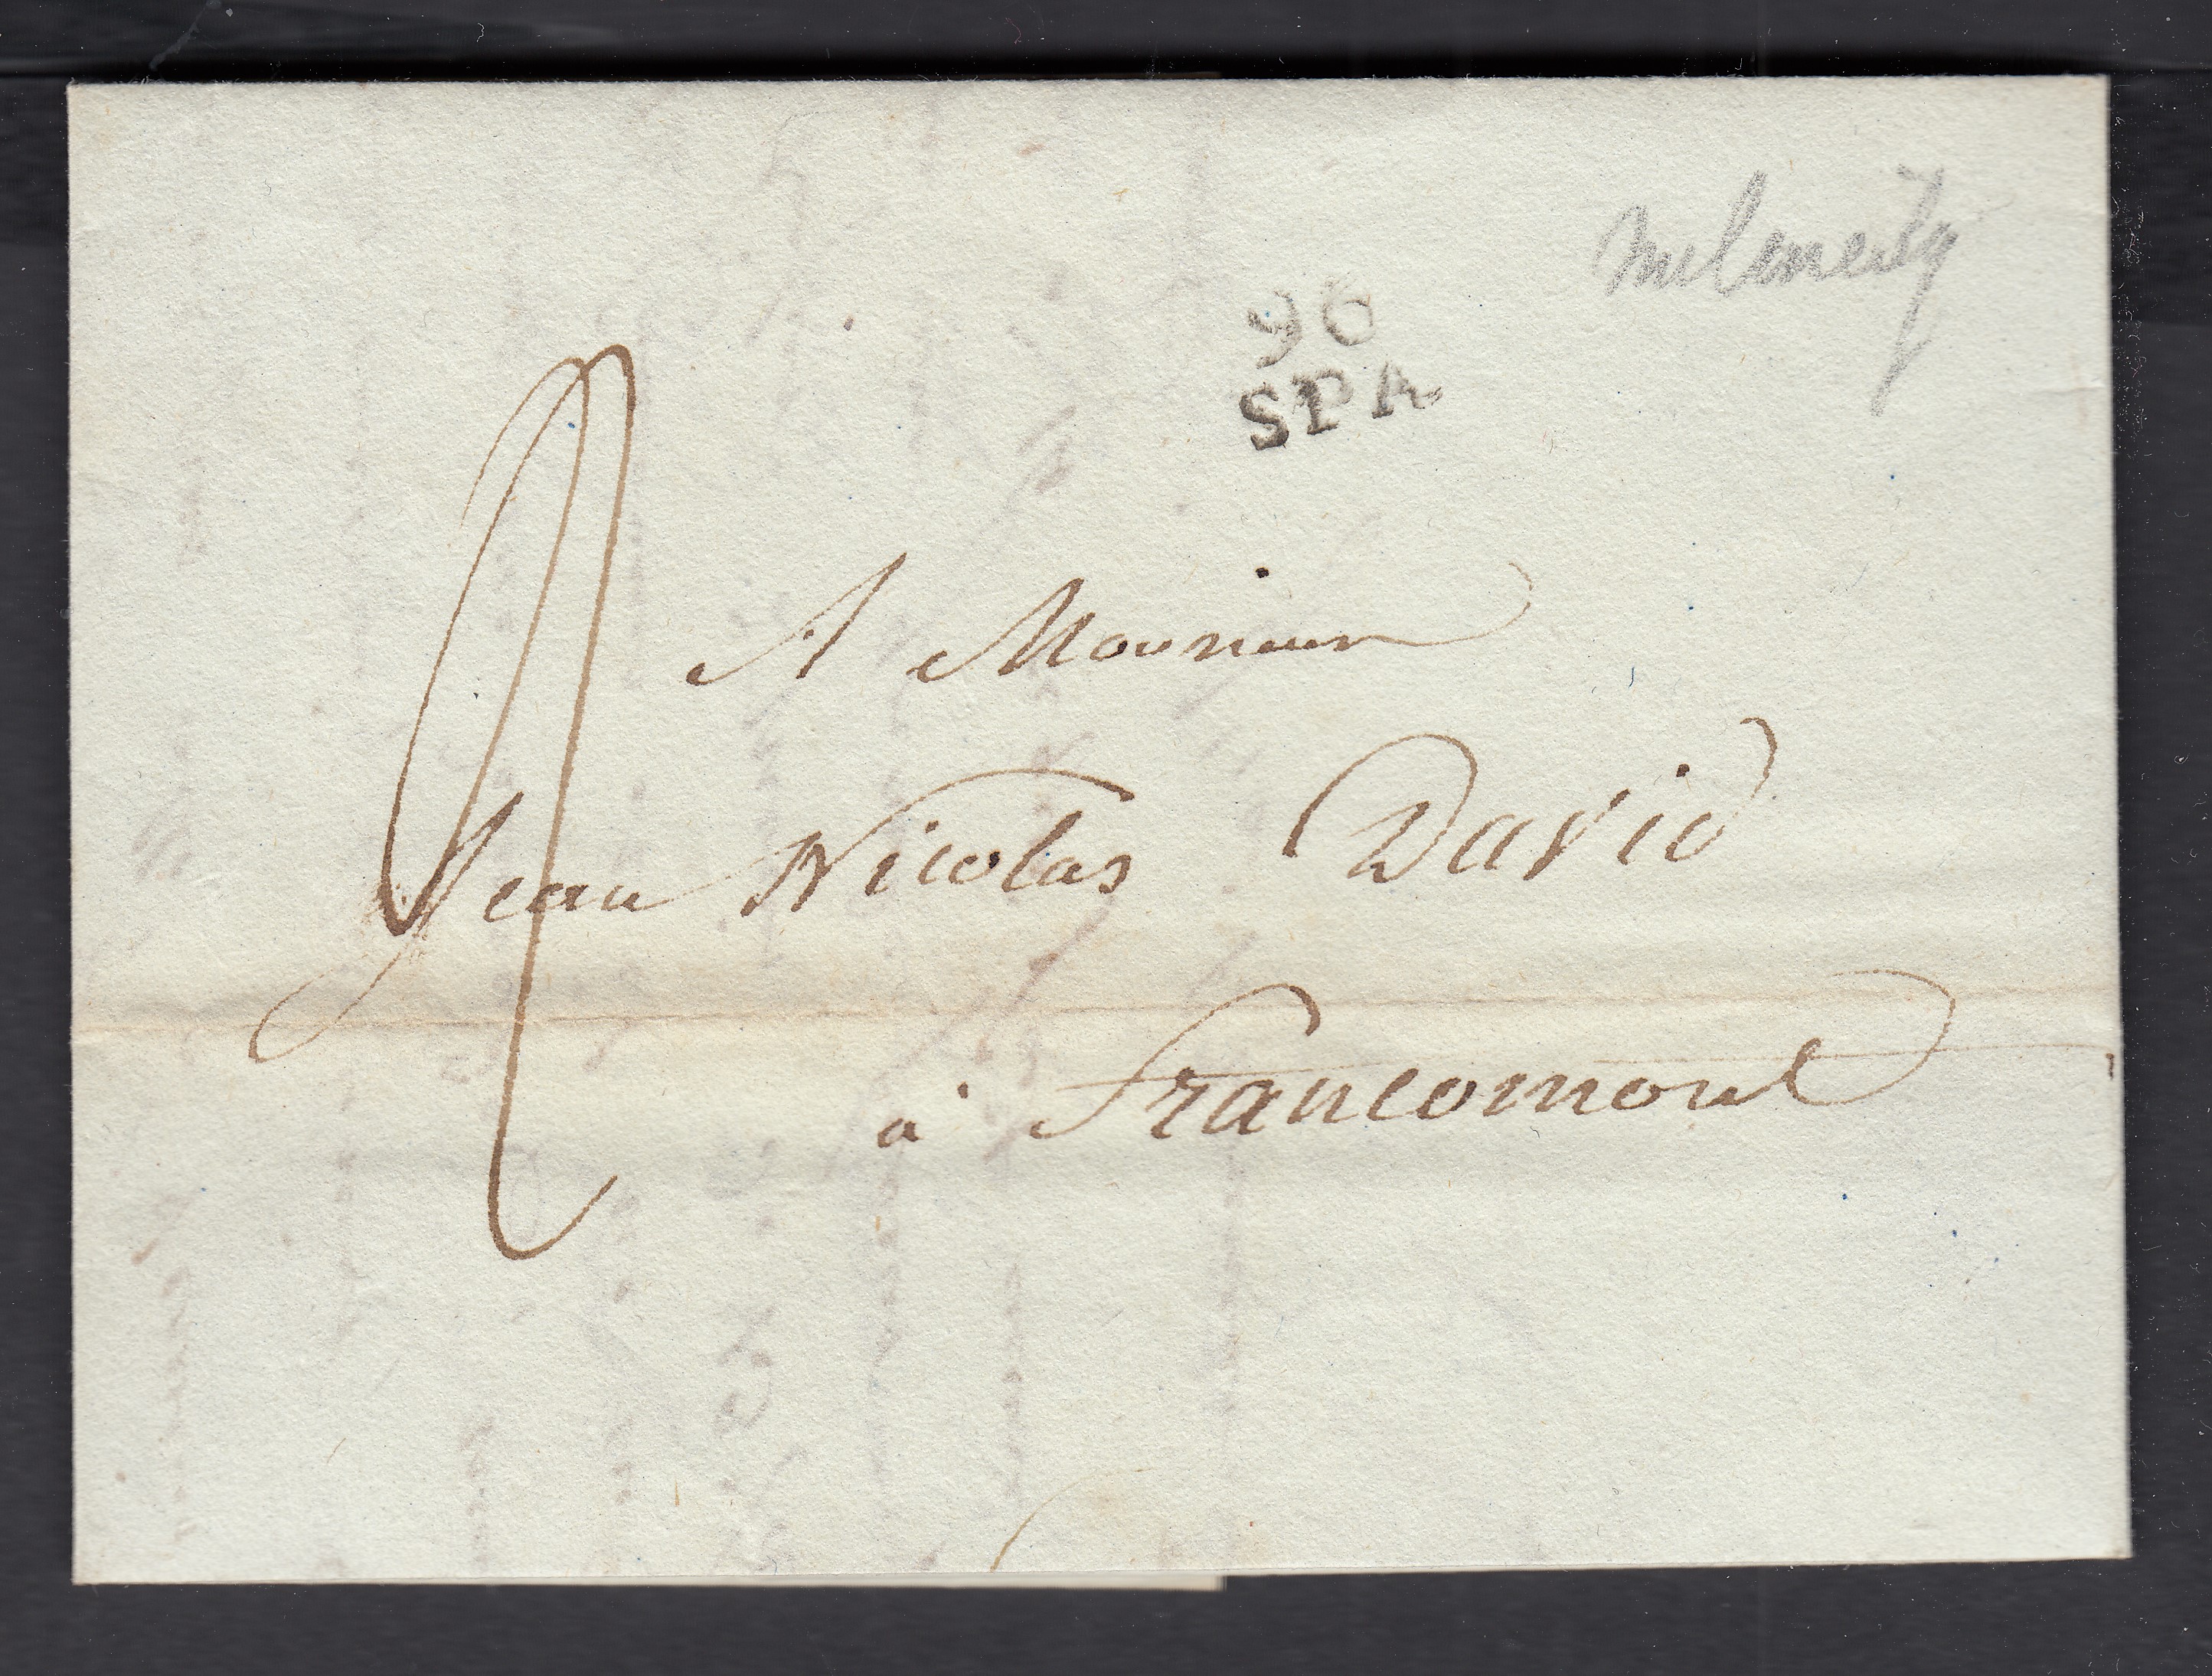 96
SPA
A Monsieur
Jean Nicolas David
à Francomont